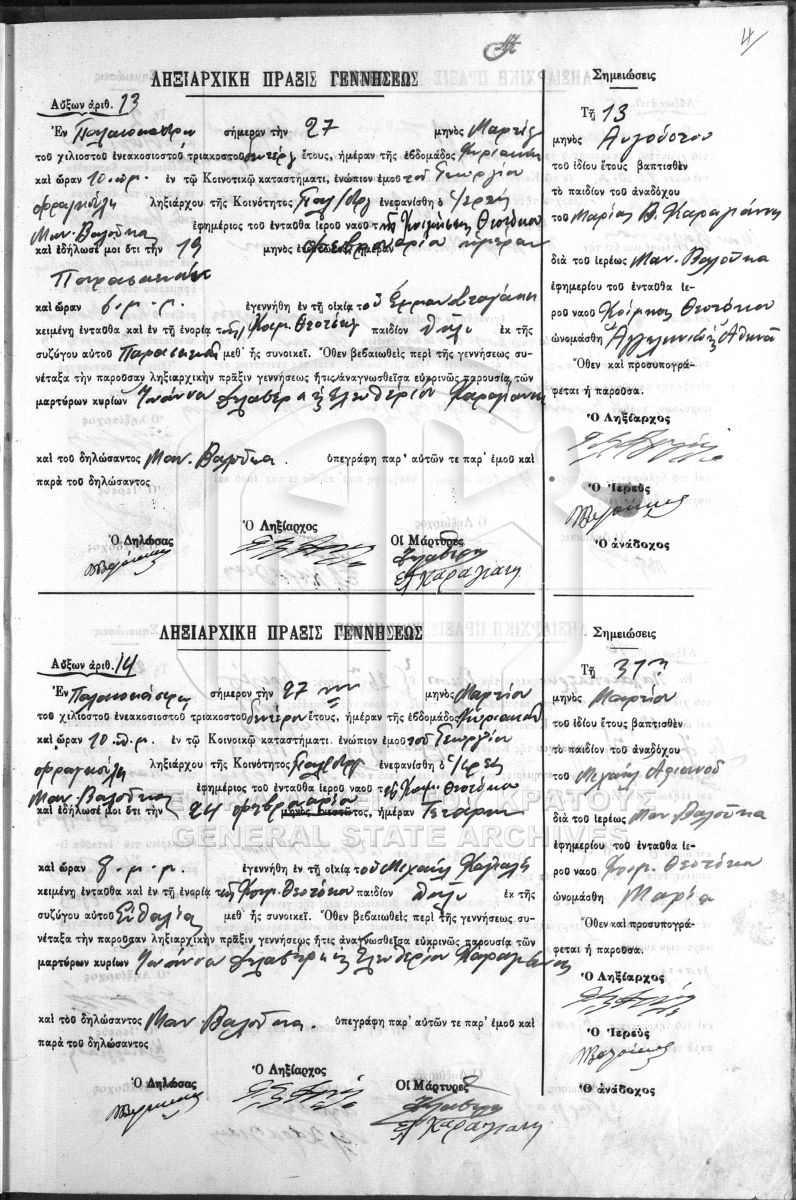 4
ΛΗΞΙΑΡΧΙΚΗ ΠΡΑΞΙΣ ΓΕΝΝΗΣΕΩΣ
Αὔξων ἀριθ. 13
Ἐν Παλαιοκάστρῳ σήμερον τὴν 27 μηνὸς Μαρτίου
τοῦ χιλιοστοῦ ἐνεακοσιοστοῦ τριακοστοῦ δευτέρου ἔτους, ἡμέραν τῆς ἑβδομάδος Κυριακὴν
καὶ ὥραν 10 π.μ. ἐν τῷ Κοινοτικῷ καταστήματι, ἐνώπιον ἐμοῦ τοῦ Γεωργίου
Φραγκούλη ληξιάρχου τῆς Κοινότητος ἐνεφανίσθη ὁ Ἱερεὺς
Μαν. Βαλούκα ἐφημέριος τοῦ ἐνταῦθα ἱεροῦ ναοῦ τῆς Κοιμήσεως Θεοτόκου
καὶ ἐδήλωσέ μοι ὅτι τὴν 19 μηνὸς Φεβρουαρίου ἡμέραν
Παρασκευὴν
καὶ ὥραν 6 μ.μ. ἐγεννήθη ἐν τῇ οἰκίᾳ τοῦ
κειμένῃ ἐνταῦθα καὶ ἐν τῇ ἐνορίᾳ τῆς Κοιμ. Θεοτόκου παιδίον θῆλυ ἐκ τῆς
συζύγου αὐτοῦ Παρασκευῆς μεθ' ἧς συνοικεῖ. Ὅθεν βεβαιωθεὶς περὶ τῆς γεννήσεως συ-
νέταξα τὴν παροῦσαν ληξιαρχικὴν πρᾶξιν γεννήσεως ἥτις ἀναγνωσθεῖσα εὐκρινῶς παρουσίᾳ τῶν
μαρτύρων κυρίων Ἰωάννου καὶ Ἐλευθερίου Καραγιάννη
καὶ τοῦ δηλώσαντος Μαν. Βαλούκα. ὑπεγράφη παρ' αὐτῶν τε παρ' ἐμοῦ καὶ
παρὰ τοῦ δηλώσαντος
Ὁ Δηλώσας Ὁ Ληξίαρχος Οἱ Μάρτυρες
Ελ Καραγιάννη
Σημειώσεις
Τῇ 13
μηνὸς Αὐγούστου
τοῦ ἰδίου ἔτους βαπτισθὲν
τὸ παιδίον τοῦ ἀναδόχου
τοῦ Μαρίας Β. Καραγιάννη
διὰ τοῦ ἱερέως Μαν. Βαλούκα
ἐφημερίου τοῦ ἐνταῦθα ἱε-
ροῦ ναοῦ Κοιμήσ. Θεοτόκου
ὠνομάσθη Ἀγγελικὴ ἢ Ἀθηνᾶ
Ὅθεν καὶ προσυπογρά-
φεται ἡ παροῦσα.
Ὁ Ληξίαρχος
Ὁ Ἱερεὺς
Ὁ ἀνάδοχος
ΛΗΞΙΑΡΧΙΚΗ ΠΡΑΞΙΣ ΓΕΝΝΗΣΕΩΣ
Αὔξων ἀριθ. 14
Ἐν Παλαιοκάστρῳ σήμερον τὴν 27 μηνὸς Μαρτίου
τοῦ χιλιοστοῦ ἐνεακοσιοστοῦ τριακοστοῦ δευτέρου ἔτους, ἡμέραν τῆς ἑβδομάδος Κυριακὴν
καὶ ὥραν 10 π.μ. ἐν τῷ Κοινοτικῷ καταστήματι. ἐνώπιον ἐμοῦ τοῦ Γεωργίου
Φραγκούλη ληξιάρχου τῆς Κοινότητος ἐνεφανίσθη ὁ Ἱερεὺς
Μαν. Βαλούκας ἐφημέριος τοῦ ἐνταῦθα ἱεροῦ ναοῦ τῆς Κοιμ. Θεοτόκου
καὶ ἐδήλωσέ μοι ὅτι τὴν 24 Φεβρουαρίου μηνὸς ἐνεστῶτος, ἡμέραν Τετάρτην
καὶ ὥραν 8 μ.μ. ἐγεννήθη ἐν τῇ οἰκίᾳ τοῦ Μιχαὴλ
κειμένῃ ἐνταῦθα καὶ ἐν τῇ ἐνορίᾳ τῆς Κοιμ. Θεοτόκου παιδίον θῆλυ ἐκ τῆς
συζύγου αὐτοῦ Εὐθαλίας μεθ' ἧς συνοικεῖ. Ὅθεν βεβαιωθεὶς περὶ τῆς γεννήσεως συ-
νέταξα τὴν παροῦσαν ληξιαρχικὴν πρᾶξιν γεννήσεως ἥτις ἀναγνωσθεῖσα εὐκρινῶς παρουσίᾳ τῶν
μαρτύρων κυρίων Ἰωάννου καὶ Ἐλευθερίου Καραγιάννη
καὶ τοῦ δηλώσαντος Μαν. Βαλούκα. ὑπεγράφη παρ' αὐτῶν τε παρ' ἐμοῦ καὶ
παρὰ τοῦ δηλώσαντος
Ὁ Δηλώσας Ὁ Ληξίαρχος Οἱ Μάρτυρες
Ελ Καραγιάννη
Σημειώσεις
Τῇ 31η
μηνὸς Μαρτίου
τοῦ ἰδίου ἔτους βαπτισθὲν
τὸ παιδίον τοῦ ἀναδόχου
τοῦ Μιχαὴλ
διὰ τοῦ ἱερέως Μαν. Βαλούκα
ἐφημερίου τοῦ ἐνταῦθα ἱε-
ροῦ ναοῦ Κοιμ. Θεοτόκου
ὠνομάσθη Μαρία
Ὅθεν καὶ προσυπογρά-
φεται ἡ παροῦσα.
Ὁ Ληξίαρχος
Ὁ Ἱερεὺς
Ὁ ἀνάδοχος
GENERAL STATE ARCHIVES